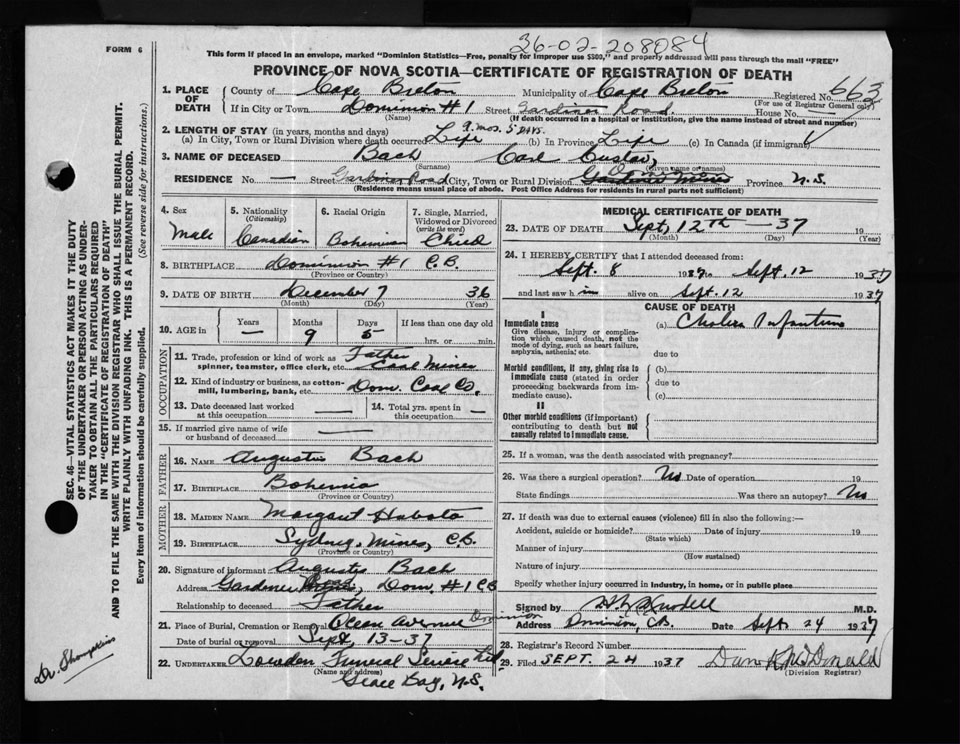 FORM 6
36-02-208084
This form if placed in an envelope, marked "Dominion Statistics—Free, penalty for improper use $500," and properly addressed will pass through the mail "FREE"
PROVINCE OF NOVA SCOTIA—CERTIFICATE OF REGISTRATION OF DEATH
663
1. PLACE OF DEATH County of Cape Breton Municipality of Cape Breton Registered No. (For use of Registrar General only)
If in City or Town Dominion #1 Street Gardiner Road House No. —
(Name) (If death occurred in a hospital or institution, give the name instead of street and number)
2. LENGTH OF STAY (in years, months and days) 9 mos. 5 days.
(a) In City, Town or Rural Division where death occurred Life (b) In Province Life (c) In Canada (if immigrant)
3. NAME OF DECEASED Bach Carl Gustav,
(Surname) (Given name or names)
RESIDENCE No. — Street Gardiner Road City, Town or Rural Division Gardiner Mines Province N.S.
(Residence means usual place of abode. Post Office Address for residents in rural parts not sufficient)
4. Sex Male
5. Nationality (Citizenship) Canadian
6. Racial Origin Bohemian
7. Single, Married, Widowed or Divorced (write the word) Child
8. BIRTHPLACE Dominion #1 C.B.
(Province or Country)
9. DATE OF BIRTH December 7 36
(Month) (Day) (Year)
10. AGE in Years — Months 9 Days 5 If less than one day old hrs. or min.
OCCUPATION
11. Trade, profession or kind of work as spinner, teamster, office clerk, etc. Father Coal Miner
12. Kind of industry or business, as cotton-mill, lumbering, bank, etc. Dom. Coal Co.
13. Date deceased last worked at this occupation —
14. Total yrs. spent in this occupation. —
15. If married give name of wife or husband of deceased —
FATHER
16. NAME Augustus Bach
17. BIRTHPLACE Bohemia
(Province or Country)
MOTHER
18. MAIDEN NAME Margaret
19. BIRTHPLACE Sydney Mines, C.B.
(Province or Country)
20. Signature of informant Augustus Bach
Address Gardiner Dom. #1 CB
Relationship to deceased Father
21. Place of Burial, Cremation or Removal Ocean Avenue Dominion
Date of burial or removal Sept. 13-37
22. UNDERTAKER Lowden Funeral Service Ltd.
(Name and address)
Glace Bay, N.S.
MEDICAL CERTIFICATE OF DEATH
23. DATE OF DEATH Sept, 12th — 37 19
(Month) (Day) (Year)
24. I HEREBY CERTIFY that I attended deceased from:
Sept. 8 1937 to Sept. 12 1937
and last saw him alive on Sept. 12 1937
CAUSE OF DEATH
I
Immediate cause
Give disease, injury or complication which caused death, not the mode of dying, such as heart failure, asphyxia, asthenia; etc.
(a) Cholera Infantum
due to
Morbid conditions, if any, giving rise to immediate cause (stated in order proceeding backwards from immediate cause).
(b)
due to
(c)
II
Other morbid conditions (if important) contributing to death but not causally related to immediate cause.
25. If a woman, was the death associated with pregnancy?
26. Was there a surgical operation? No Date of operation 19
State findings Was there an autopsy? No
27. If death was due to external causes (violence) fill in also the following:—
Accident, suicide or homicide? Date of injury 19
(State which)
Manner of injury
(How sustained)
Nature of injury
Specify whether injury occurred in industry, in home, or in public place
Signed by M.D.
Address Dominion, C.B. Date Sept. 24 1937
28. Registrar's Record Number
29. Filed SEPT. 24 1937 Dan McDonald
(Division Registrar)
SEC. 46—VITAL STATISTICS ACT MAKES IT THE DUTY
OF THE UNDERTAKER OR PERSON ACTING AS UNDERTAKER
TO OBTAIN ALL THE PARTICULARS REQUIRED
IN THE "CERTIFICATE OF REGISTRATION OF DEATH"
AND TO FILE THE SAME WITH THE DIVISION REGISTRAR WHO SHALL ISSUE THE BURIAL PERMIT.
WRITE PLAINLY WITH UNFADING INK. THIS IS A PERMANENT RECORD.
Every item of information should be carefully supplied. (See reverse side for instructions.)
Dr. Thompkins